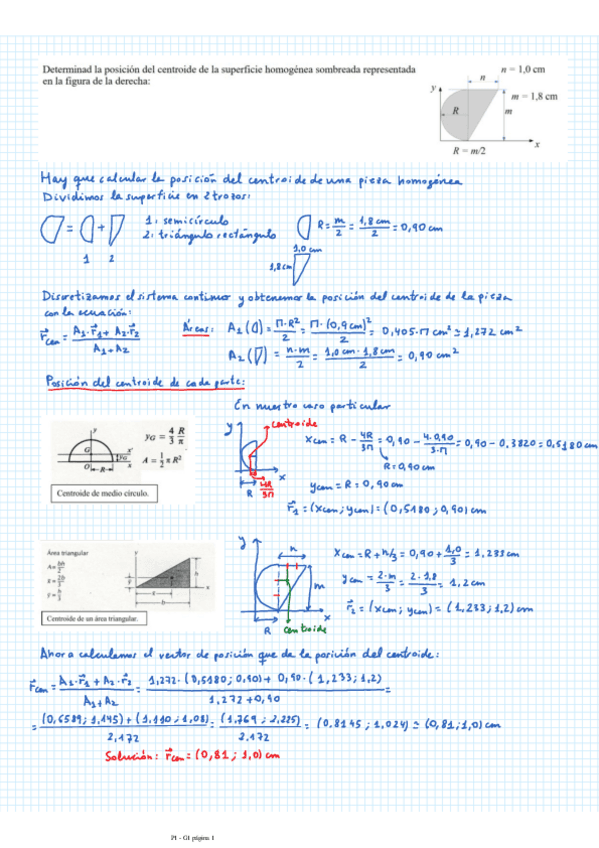 Determinad la posición del centroide de la superficie homogénea sombreada representada
en la figura de la derecha:
n = 1,0 cm
n
y
m = 1,8 cm
R
m
x
R = m/2
Hay que calcular la posición del centroide de una pieza homogénea
Dividimos la superficie en 2 trozos:
= + 
1 2
1: semicírculo
2: triángulo rectángulo
R = m/2 = 1,8 cm/2 = 0,90 cm
1,0 cm
1,8 cm
Discretizamos el sistema continuo y obtenemos la posición del centroide de la pieza
con la ecuación:
r⃗cen = (A1·r⃗1 + A2·r⃗2)/(A1+A2)
Áreas: A1 (D) = Π·R²/2 = Π·(0,9 cm)²/2 = 0,405·Π cm² ≃ 1,272 cm²
A2 (▽) = n·m/2 = 1,0 cm · 1,8 cm/2 = 0,90 cm²
Posición del centroide de cada parte:
En nuestro caso particular
y
G
x'
yG
O
R
x
yG = 4/3 R/π
A = 1/2 π R²
Centroide de medio círculo.
y
centroide
x
R
4R/3Π
xcen = R - 4R/3Π = 0,90 - 4·0,90/3·Π = 0,90 - 0,3820 = 0,5180 cm
R = 0,90 cm
ycen = R = 0,90 cm
r⃗1 = (xcen; ycen) = (0,5180; 0,90) cm
Área triangular
A = bh/2
x̄ = 2b/3
ȳ = h/3
Centroide de un área triangular.
y
n
m
x
R
centroide
xcen = R + n/3 = 0,90 + 1,0/3 = 1,233 cm
ycen = 2·m/3 = 2·1,8/3 = 1,2 cm
r⃗2 = (xcen; ycen) = (1,233; 1,2) cm
Ahora calculamos el vector de posición que da la posición del centroide:
r⃗cen = (A1·r⃗1 + A2·r⃗2)/(A1+A2) = (1,272·(0,5180; 0,90) + 0,90·(1,233; 1,2))/(1,272+0,90) =
= ((0,6589; 1,145) + (1,110; 1,08))/2,172 = (1,769; 2,225)/2,172 = (0,8145; 1,024) ≃ (0,81; 1,0) cm
Solución: r⃗cen = (0,81; 1,0) cm
P1 - G1 página 1